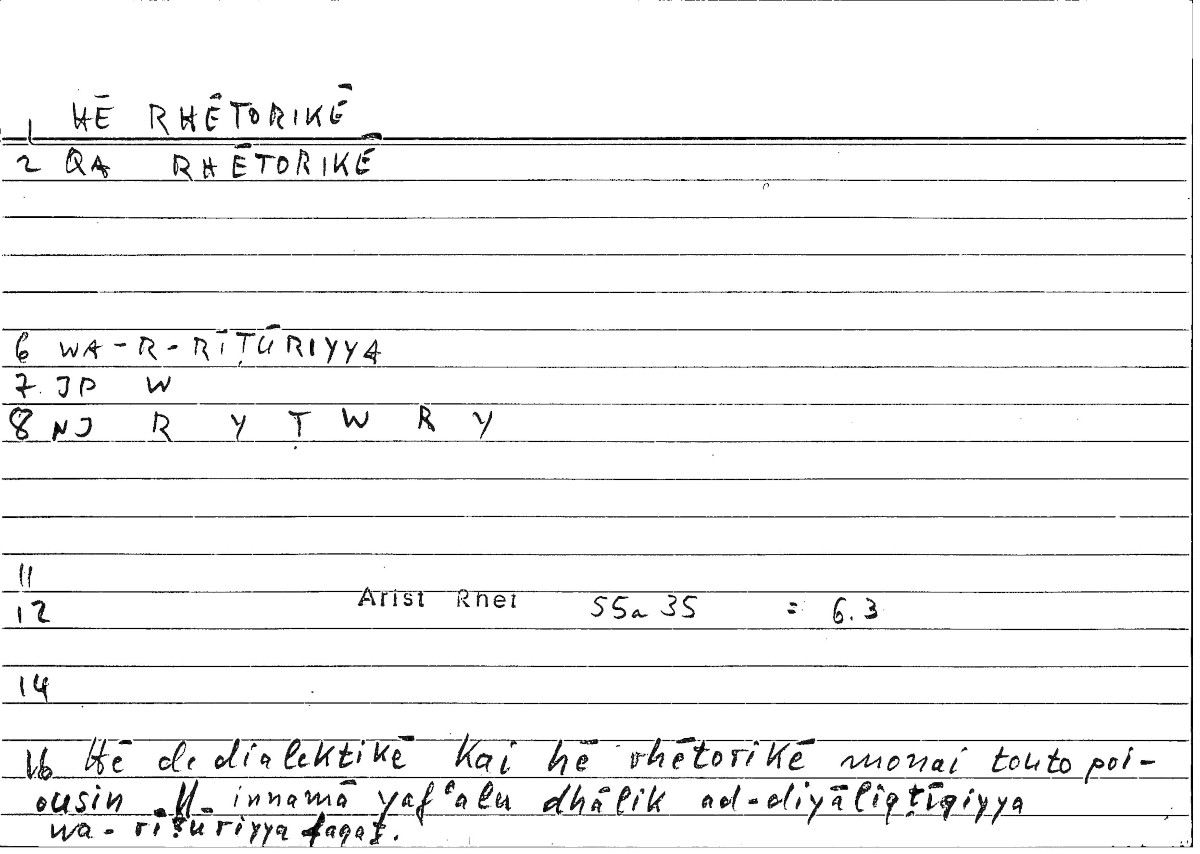 1 HĒ RHĒTORIKĒ
2 QA RHĒTORIKĒ
6 WA-R-RĪṬŪRIYYA
7. JP W
8 NJ R Y Ṭ W R Y
11
12 Arist Rhet 55a 35 = 6.3
14
16 Hē de dialektikē kai hē rhētorikē monai touto poi-
ousin -||- innamā yafʿalu dhālik ad-diyāliqṭīqiyya
wa-rīṭūriyya faqaṭ.